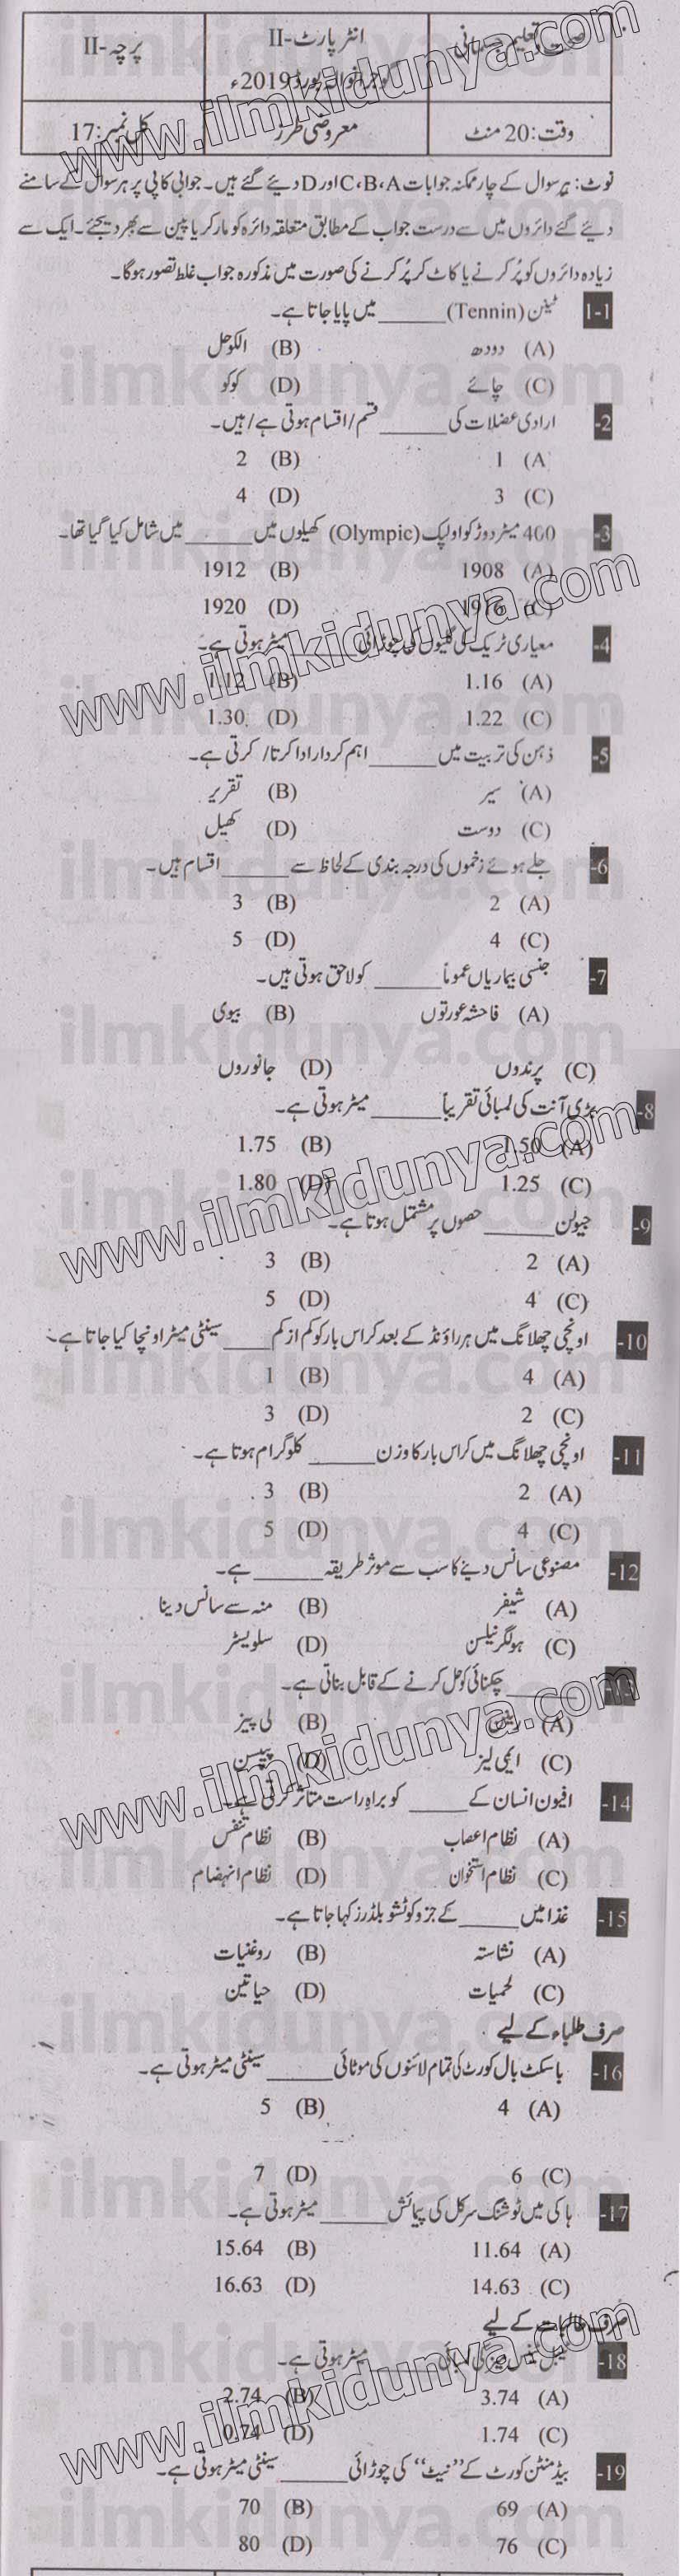 صحت و تعلیم جسمانی
انٹر پارٹ-II
گوجرانوالہ بورڈ 2019ء
پرچہ-II
وقت: 20 منٹ
معروضی طرز
کل نمبر: 17
نوٹ: ہر سوال کے چار ممکنہ جوابات C،B،A اور D دیئے گئے ہیں۔ جوابی کاپی پر ہر سوال کے سامنے
دیئے گئے دائروں میں سے درست جواب کے مطابق متعلقہ دائرہ کو مارکر یا پین سے بھر دیجئے۔ ایک سے
زیادہ دائروں کو پُر کرنے یا کاٹ کر پُر کرنے کی صورت میں مذکورہ جواب غلط تصور ہوگا۔
1-1 ٹینن (Tennin) ______ میں پایا جاتا ہے۔
(A) دودھ (B) الکوحل
(C) چائے (D) کوکو
2- ارادی عضلات کی ______ قسم/اقسام ہوتی ہے/ہیں۔
(A 1 (B) 2
(C) 3 (D) 4
3- 400 میٹر دوڑ کو اولپک (Olympic) کھیلوں میں ______ میں شامل کیا گیا تھا۔
(A) 1908 (B) 1912
(C) 1916 (D) 1920
4- معیاری ٹریک کی گلیوں کی چوڑائی ______ میٹر ہوتی ہے۔
(A) 1.16 (B) 1.12
(C) 1.22 (D) 1.30
5- ذہن کی تربیت میں ______ اہم کردار ادا کرتا/کرتی ہے۔
(A) سیر (B) تقریر
(C) دوست (D) کھیل
6- جلے ہوئے زخموں کی درجہ بندی کے لحاظ سے ______ اقسام ہیں۔
(A) 2 (B) 3
(C) 4 (D) 5
7- جنسی بیماریاں عموماً ______ کو لاحق ہوتی ہیں۔
(A) فاحشہ عورتوں (B) بیوی
(C) پرندوں (D) جانوروں
8- بڑی آنت کی لمبائی تقریباً ______ میٹر ہوتی ہے۔
(A) 1.50 (B) 1.75
(C) 1.25 (D) 1.80
9- جیولن ______ حصوں پر مشتمل ہوتا ہے۔
(A) 2 (B) 3
(C) 4 (D) 5
10- اونچی چھلانگ میں ہر راؤنڈ کے بعد کراس بار کو کم از کم ____ سینٹی میٹر اونچا کیا جاتا ہے۔
(A) 4 (B) 1
(C) 2 (D) 3
11- اونچی چھلانگ میں کراس بار کا وزن ______ کلوگرام ہوتا ہے۔
(A) 2 (B) 3
(C) 4 (D) 5
12- مصنوعی سانس دینے کا سب سے موثر طریقہ ______ ہے۔
(A) شیفر (B) منہ سے سانس دینا
(C) ہولگر نیلسن (D) سلویسٹر
13- ______ چکنائی کو حل کرنے کے قابل بناتی ہے۔
(A) رینن (B) لی پیز
(C) ایمی لیز (D) پیپسن
14- افیون انسان کے ______ کو براہ راست متاثر کرتی ہے۔
(A) نظام اعصاب (B) نظام تنفس
(C) نظام استخوان (D) نظام انہضام
15- غذا میں ______ کے جزو کو ٹشو بلڈرز کہا جاتا ہے۔
(A) نشاستہ (B) روغنیات
(C) لحمیات (D) حیاتین
صرف طلباء کے لیے
16- باسکٹ بال کورٹ کی تمام لائنوں کی موٹائی ______ سینٹی میٹر ہوتی ہے۔
(A) 4 (B) 5
(C) 6 (D) 7
17- ہاکی میں شوٹنگ سرکل کی پیمائش ______ میٹر ہوتی ہے۔
(A) 11.64 (B) 15.64
(C) 14.63 (D) 16.63
صرف طالبات کے لیے
18- ٹیبل ٹینس میز کی لمبائی ______ میٹر ہوتی ہے۔
(A) 3.74 (B) 2.74
(C) 1.74 (D) 0.74
19- بیڈمنٹن کورٹ کے "نیٹ" کی چوڑائی ______ سینٹی میٹر ہوتی ہے۔
(A) 69 (B) 70
(C) 76 (D) 80
www.ilmkidunya.com
ilmkidunya.com